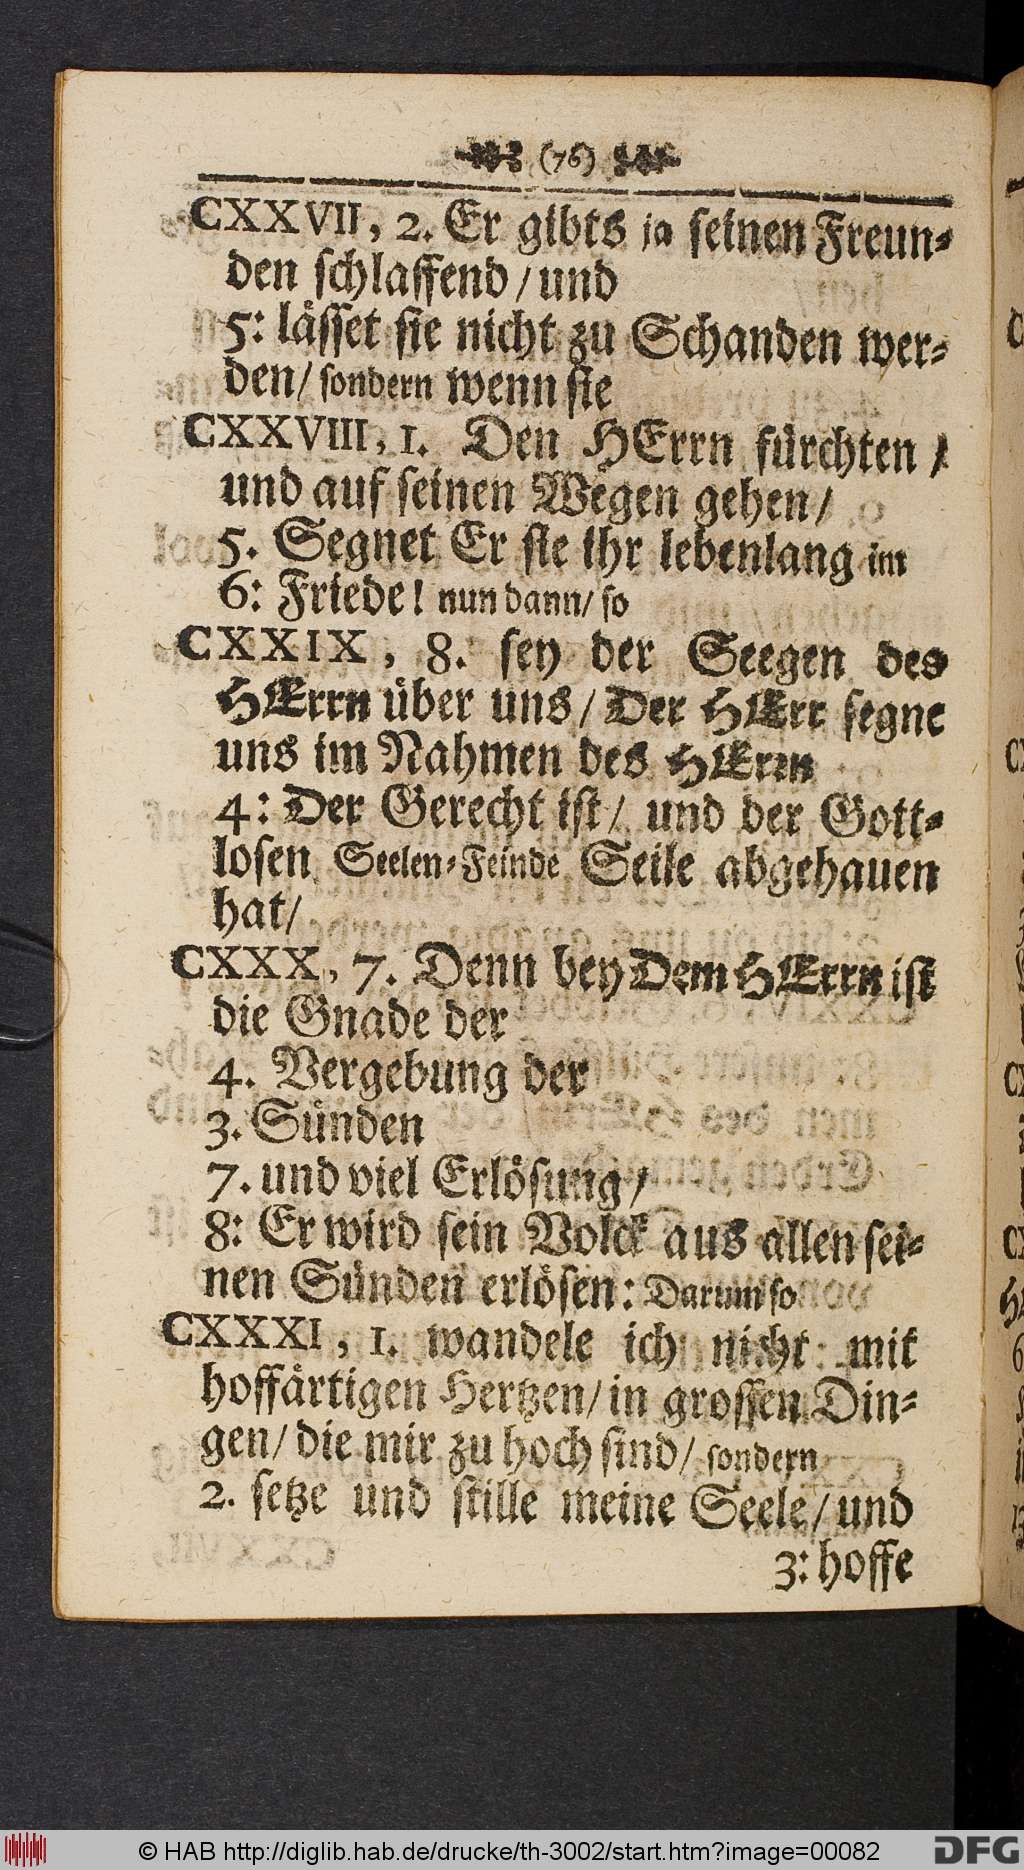 (76)
CXXVII, 2. Er gibts ja seinen Freun-
den schlaffend / und
5: lässet sie nicht zu Schanden wer-
den / sondern wenn sie
CXXVIII, 1. Den HErrn fürchten /
und auf seinen Wegen gehen /
5. Segnet Er sie ihr lebenlang im
6: Friede! nun dann / so
CXXIX, 8. sey der Seegen des
HErrn über uns / Der HErr segne
uns im Nahmen des HErrn
4: Der Gerecht ist / und der Gott-
losen Seelen-Feinde Seile abgehauen
hat /
CXXX, 7. Denn bey Dem HErrn ist
die Gnade der
4. Vergebung der
3. Sünden
7. und viel Erlösung /
8: Er wird sein Volck aus allen sei-
nen Sünden erlösen: Darum so
CXXXI, 1. wandele ich nicht mit
hoffärtigen Hertzen / in grossen Din-
gen / die mir zu hoch sind / sondern
2. setze und stille meine Seele / und
3: hoffe
© HAB http://diglib.hab.de/drucke/th-3002/start.htm?image=00082
DFG